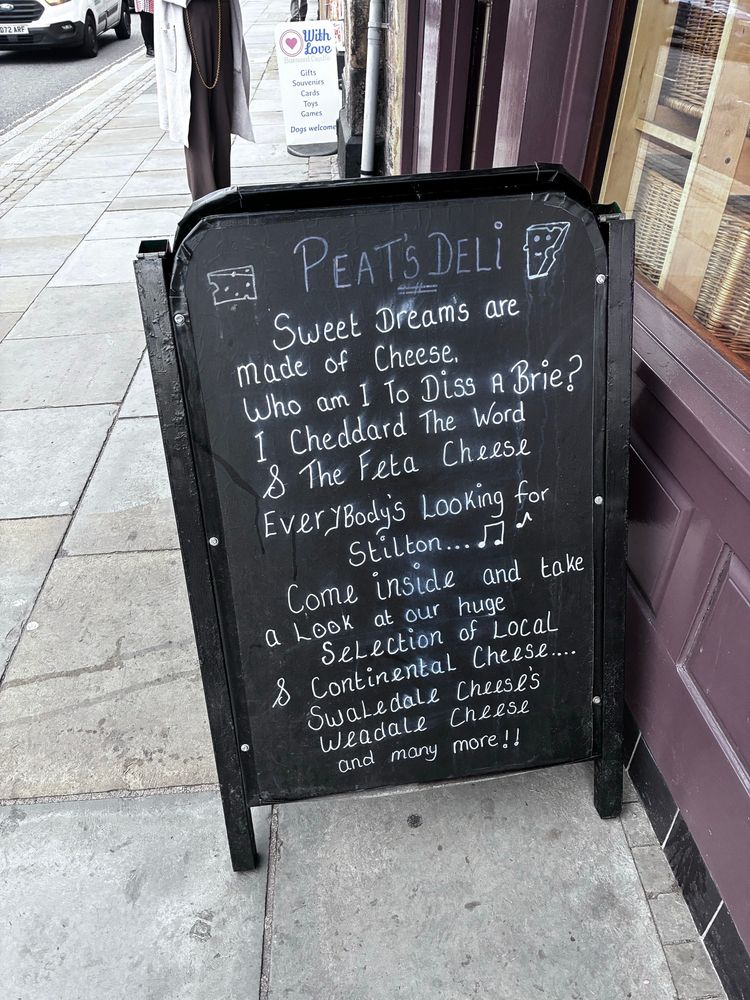 072 ARF
With
Love
Barnard Castle
Gifts
Souvenirs
Cards
Toys
Games
Dogs welcome
PEAT'S DELI
Sweet Dreams are
made of Cheese.
Who am I To Diss A Brie?
I Cheddard The Word
& The Feta Cheese
EverYBody's Looking for
Stilton...
Come inside and take
a Look at our huge
Selection of Local
& Continental Cheese....
Swaledale Cheese's
Weadale Cheese
and many more!!